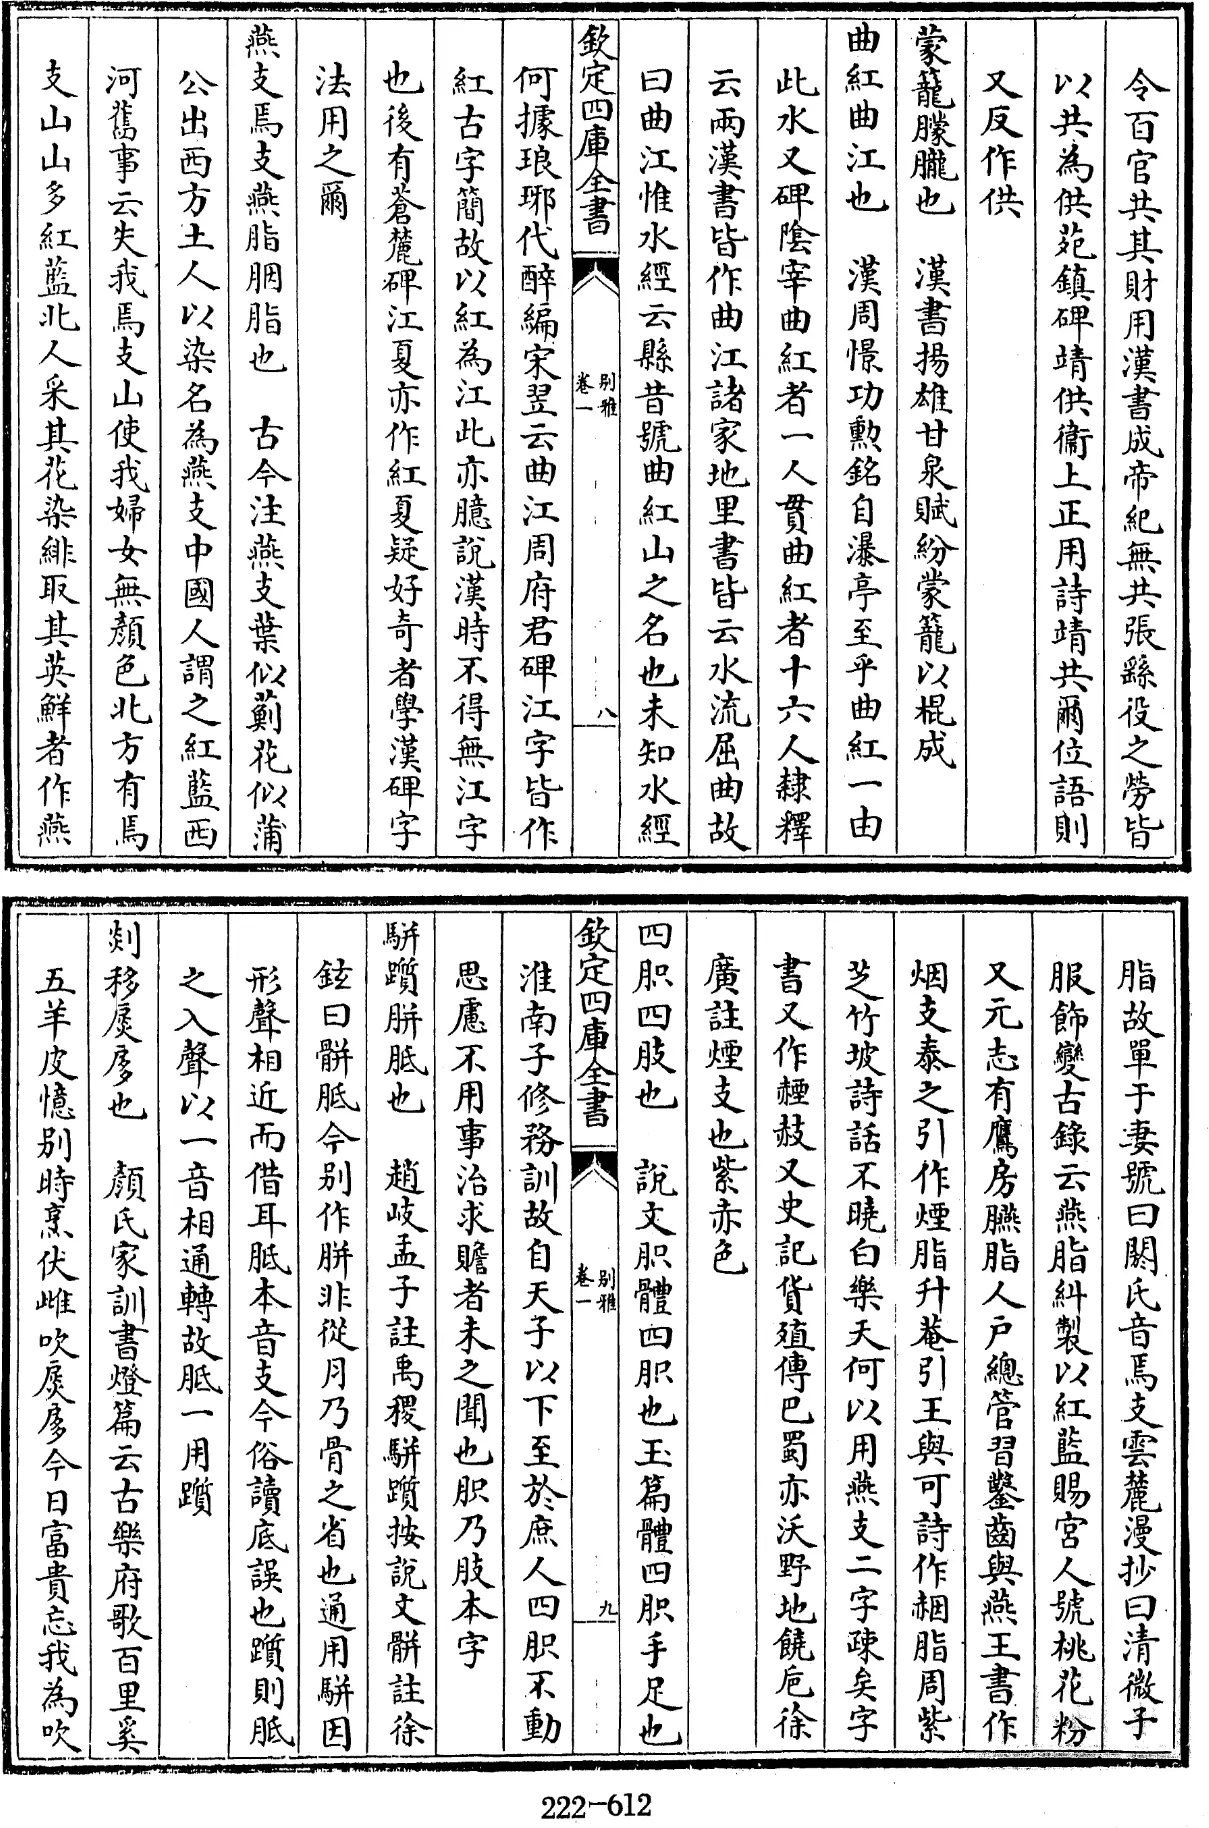 令百官共其財用漢書成帝紀無共張繇役之勞皆
以共為供苑鎮碑靖供衞上正用詩靖共爾位語則
又反作供
蒙籠朦朧也　漢書揚雄甘泉賦紛蒙籠以棍成
曲紅曲江也　漢周憬功勲銘自瀑亭至乎曲紅一由
此水又碑陰宰曲紅者一人貫曲紅者十六人隷釋
云兩漢書皆作曲江諸家地里書皆云水流屈曲故
曰曲江惟水經云縣昔號曲紅山之名也未知水經
欽定四庫全書
别雅
卷一
八
何據琅琊代醉編宋翌云曲江周府君碑江字皆作
紅古字簡故以紅為江此亦臆說漢時不得無江字
也後有蒼麓碑江夏亦作紅夏疑好奇者學漢碑字
法用之爾
燕支焉支燕脂胭脂也　古今注燕支葉似薊花似蒲
公出西方土人以染名為燕支中國人謂之紅藍西
河舊事云失我焉支山使我婦女無顏色北方有焉
支山山多紅藍北人采其花染緋取其英鮮者作燕
脂故單于妻號曰閼氏音焉支雲麓漫抄曰清微子
服飾變古錄云燕脂糾製以紅藍賜宮人號桃花粉
又元志有鷹房臙脂人戶總管習鑿齒與燕王書作
烟支泰之引作煙脂升菴引王與可詩作䄄脂周紫
芝竹坡詩話不曉白樂天何以用燕支二字疎矣字
書又作𧹬䞚又史記貨殖傳巴蜀亦沃野地饒巵徐
廣註煙支也紫赤色
四胑四肢也　說文胑體四胑也玉篇體四胑手足也
欽定四庫全書
别雅
卷一
九
淮南子修務訓故自天子以下至於庶人四胑不動
思慮不用事治求贍者未之聞也胑乃肢本字
駢躓胼胝也　趙岐孟子註禹稷駢躓按說文骿註徐
鉉曰骿胝今别作胼非從⺼乃骨之省也通用駢因
形聲相近而借耳胝本音支今俗讀底誤也躓則胝
之入聲以一音相通轉故胝一用躓
剡移扊扅也　顏氏家訓書燈篇云古樂府歌百里奚
五羊皮憶别時烹伏雌吹扊扅今日富貴忘我為吹
222-612